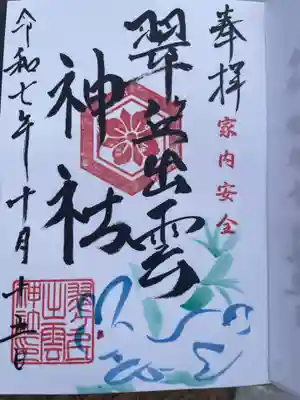 奉拝
家内安全
翠丘出雲
神社
令和七年十月十五日
翠丘
出雲
神社印